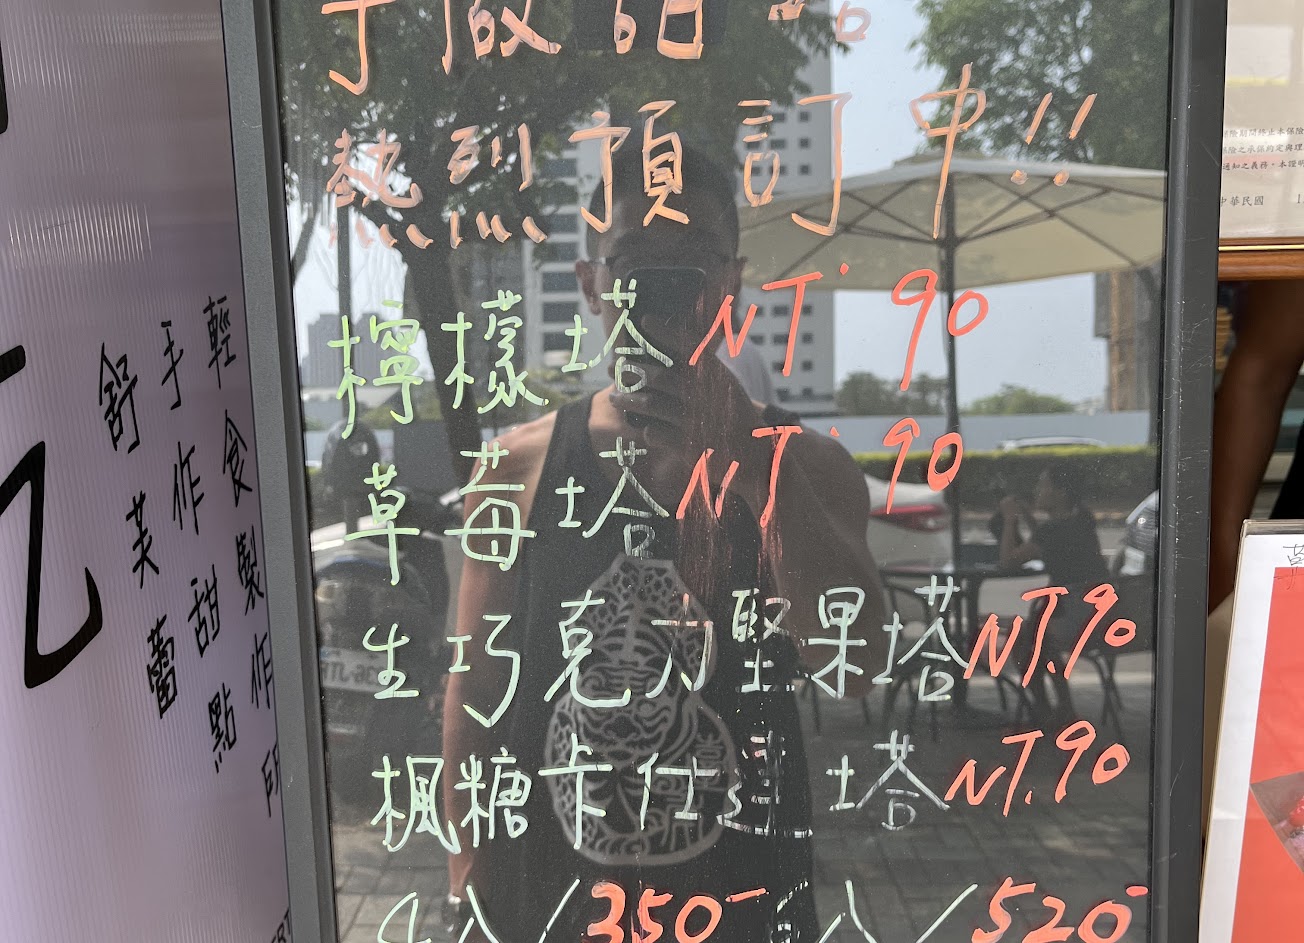 手做甜塔
熱烈預訂中!!
檸檬塔 NT. 90
草莓塔 NT. 90
生巧克力堅果塔 NT. 90
楓糖卡仕達塔 NT. 90
4入/350- 6入/520-
輕食製作
手作甜點
舒芙蕾
中華民國